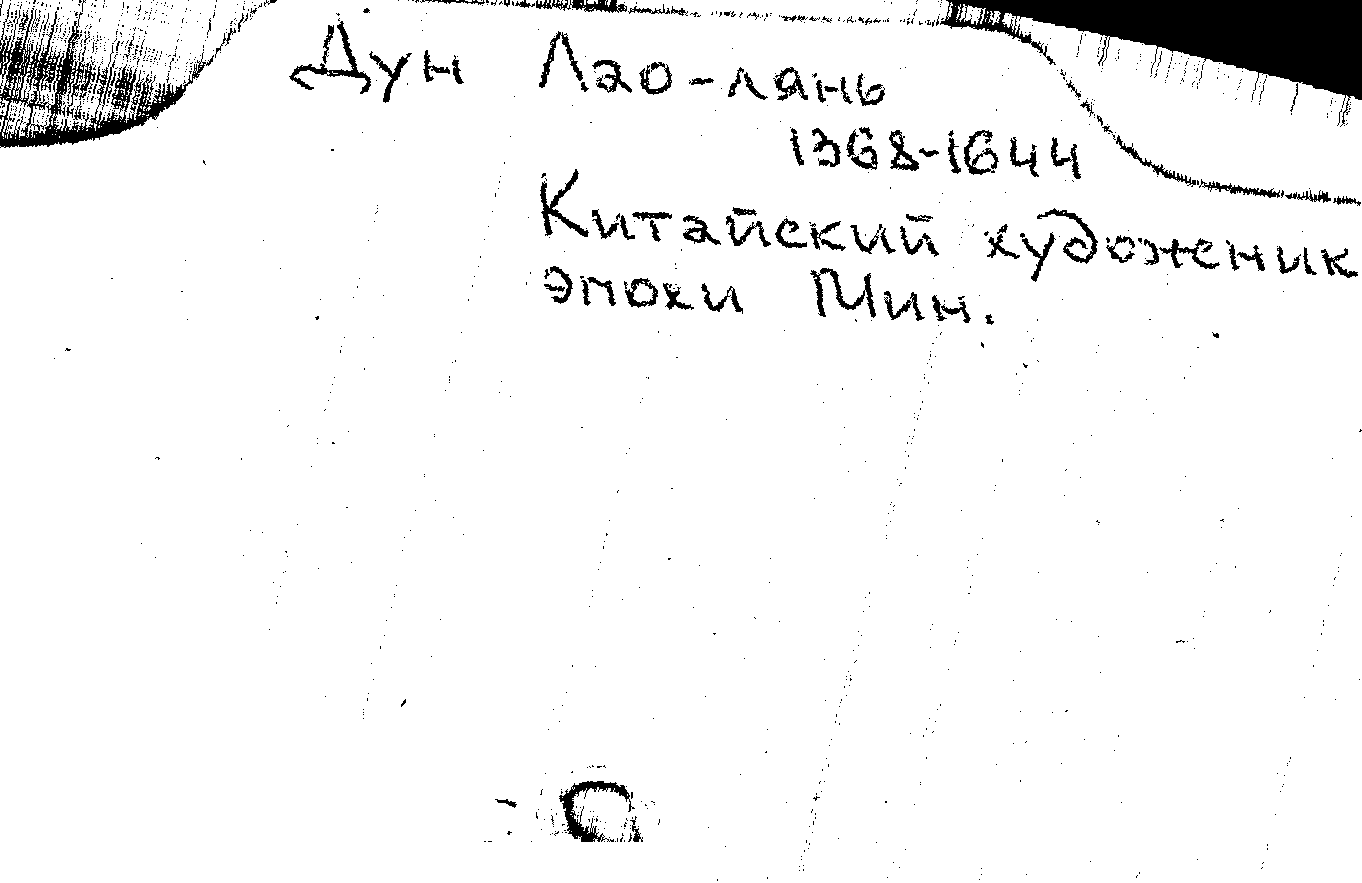 Дун Лао-лянь
1368-1644
Китайский художеник
эпохи Мин.